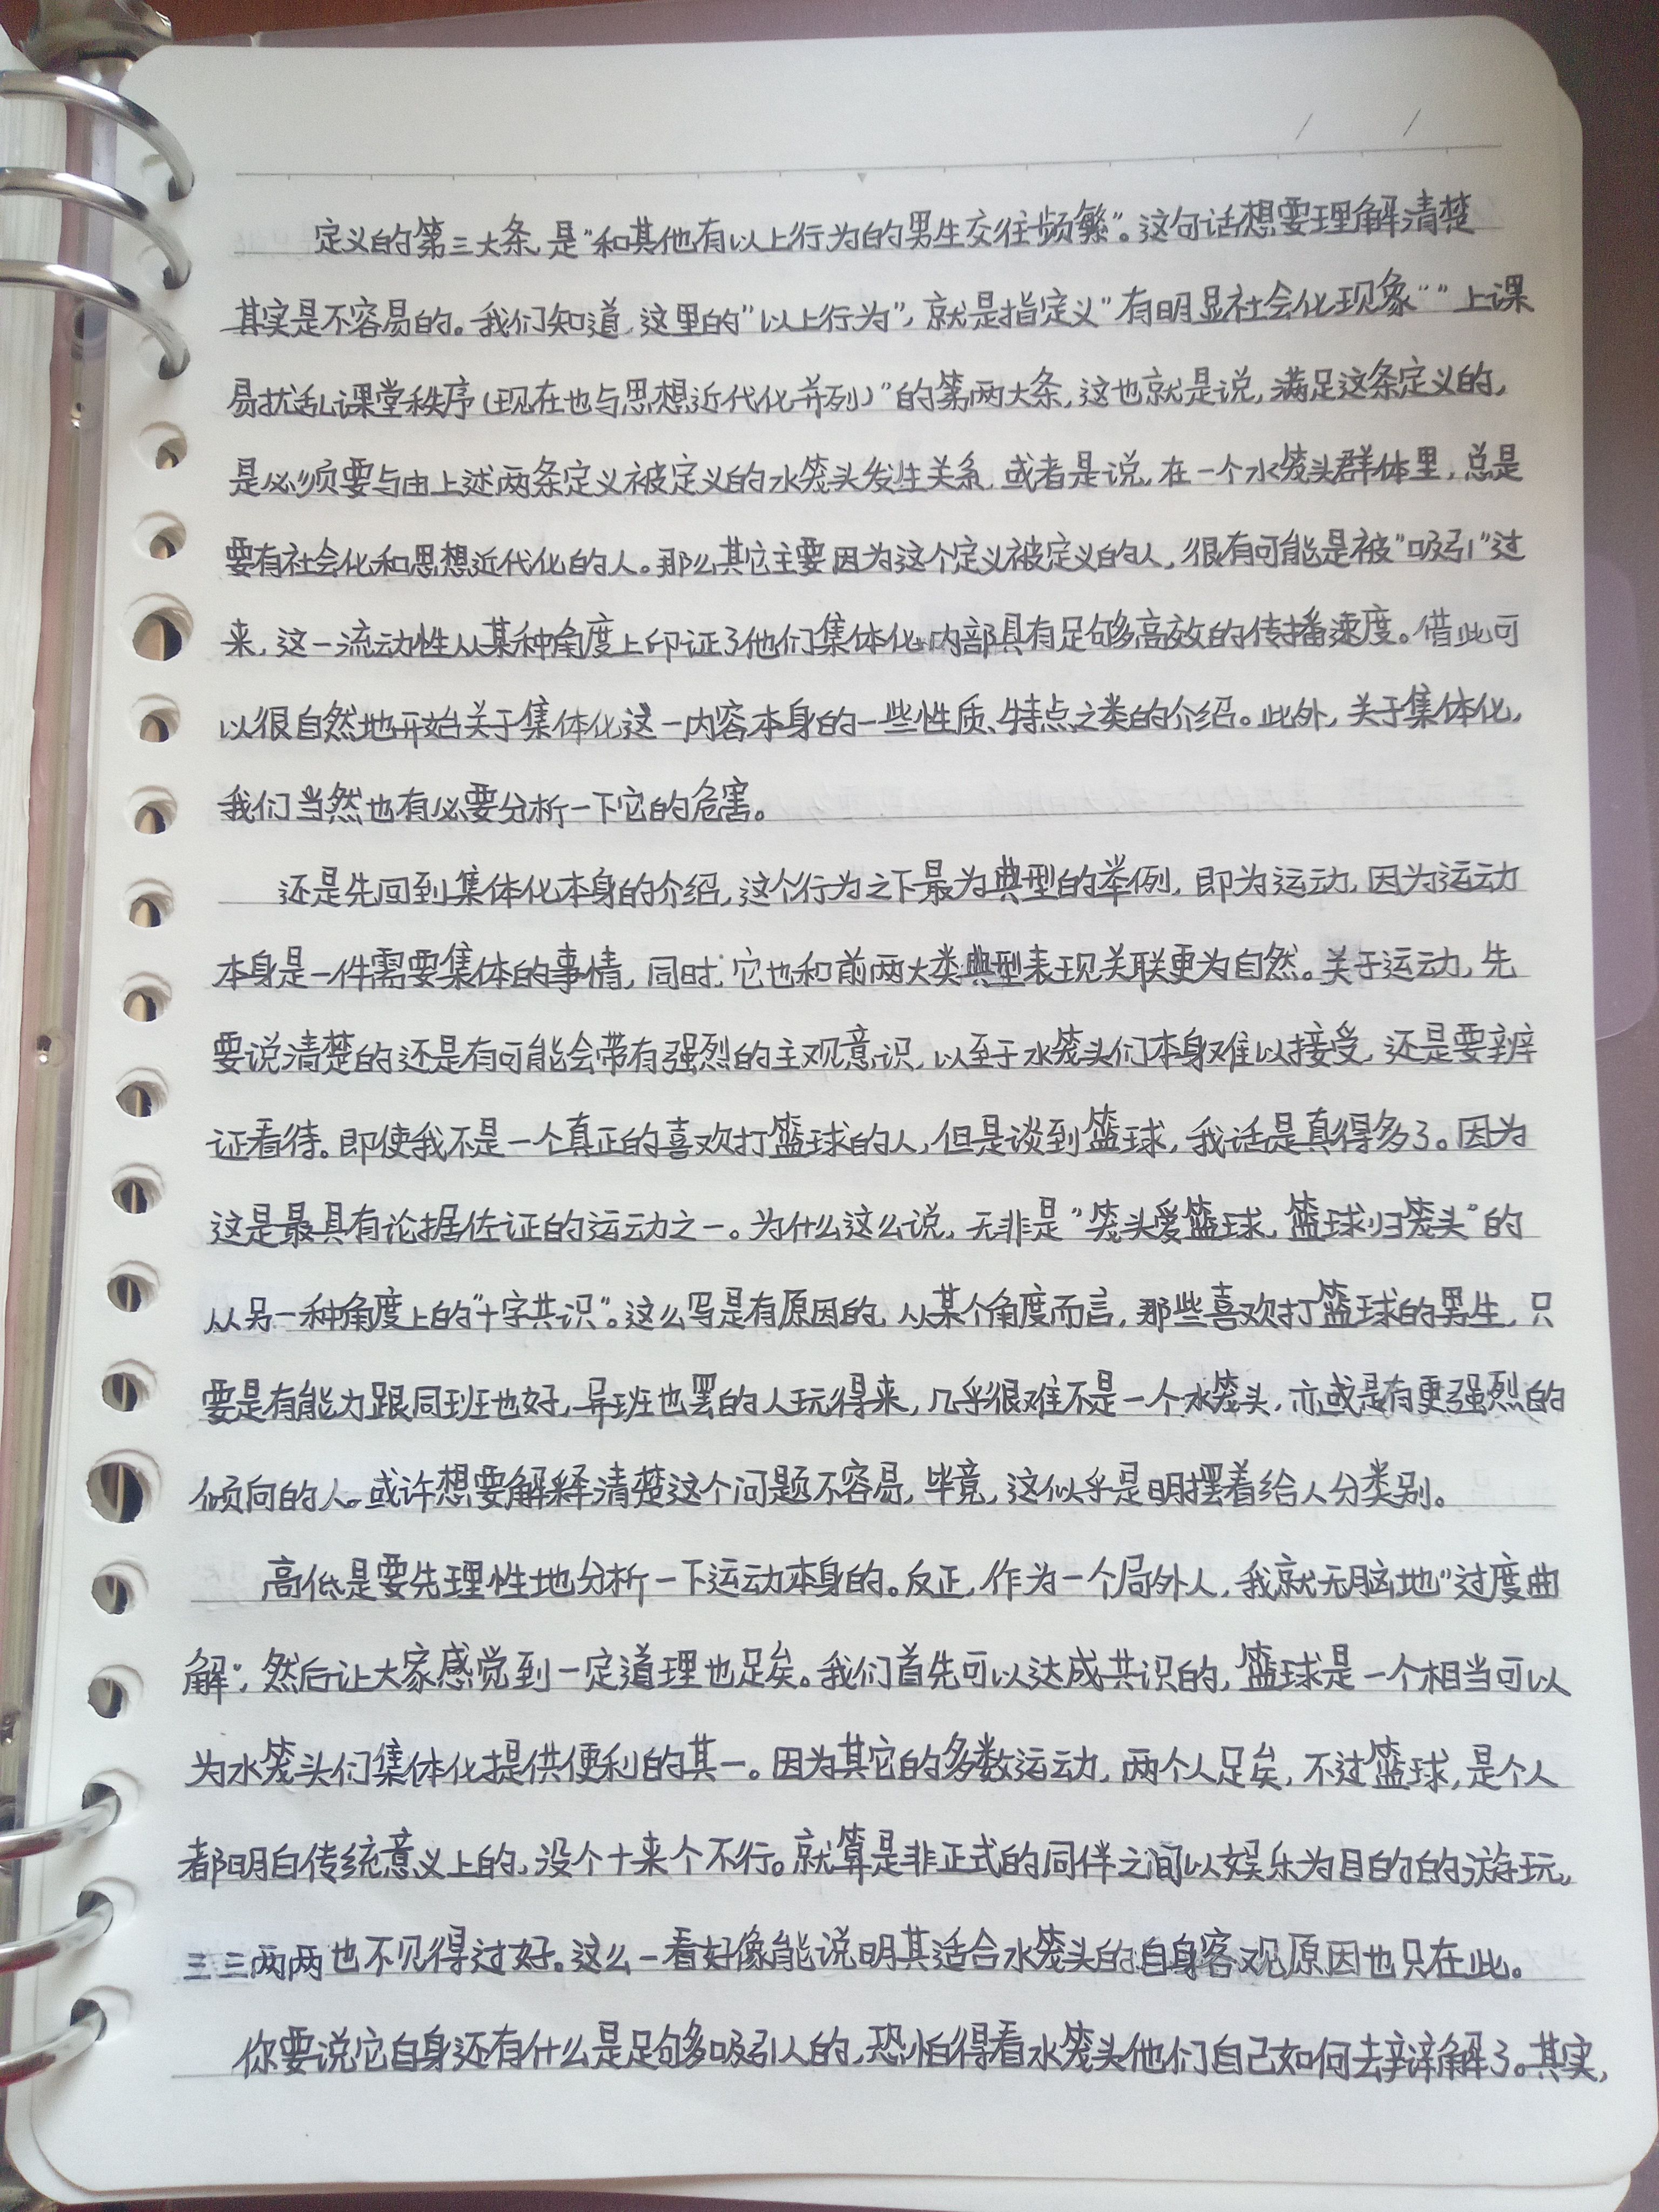 定义的第三大条,是“和其他有以上行为的男生交往频繁”。这句话想要理解清楚
其实是不容易的。我们知道,这里的“以上行为”,就是指定义“有明显社会化现象”“上课
易扰乱课堂秩序(现在也与思想近代化并列)”的第两大条,这也就是说,满足这条定义的,
是必须要与由上述两条定义被定义的水笼头发生关系,或者是说,在一个水笼头群体里,总是
要有社会化和思想近代化的人。那么其它主要因为这个定义被定义的人,很有可能是被“吸引”过
来,这一流动性从某种角度上印证了他们集体化内部具有足够多高效的传播速度。借此可
以很自然地开始关于集体化这一内容本身的一些性质、特点之类的介绍。此外,关于集体化,
我们当然也有必要分析一下它的危害。
还是先回到集体化本身的介绍,这个行为之下最为典型的举例,即为运动,因为运动
本身是一件需要集体的事情,同时,它也和前两大类典型表现关联更为自然。关于运动,先
要说清楚的还是有可能会带有强烈的主观意识,以至于水笼头们本身难以接受,还是要辨
证看待。即使我不是一个真正的喜欢打篮球的人,但是谈到篮球,我话是真得多了。因为
这是最具有论据佐证的运动之一。为什么这么说,无非是“笼头爱篮球,篮球归笼头”的
从另一种角度上的“十字共识”。这么写是有原因的,从某个角度而言,那些喜欢打篮球的男生,只
要是有能力跟同班也好,异班也罢的人玩得来,几乎很难不是一个水笼头,亦或是有更强烈的
倾向的人。或许想要解释清楚这个问题不容易,毕竟,这似乎是明摆着给人分类别。
高低是要先理性地分析一下运动本身的。反正,作为一个局外人,我就无脑地“过度曲
解”,然后让大家感觉到一定道理也足矣。我们首先可以达成共识的,篮球是一个相当可以
为水笼头们集体化提供便利的其一。因为其它的多数运动,两个人足矣,不过篮球,是个人
都明白传统意义上的,没个十来个不行。就算是非正式的同伴之间以娱乐为目的的游玩,
三三两两也不见得过好。这么一看好像能说明其适合水笼头的自身客观原因也只在此。
你要说它自身还有什么是足够吸引人的,恐怕得看水笼头他们自己如何去辩解了。其实,